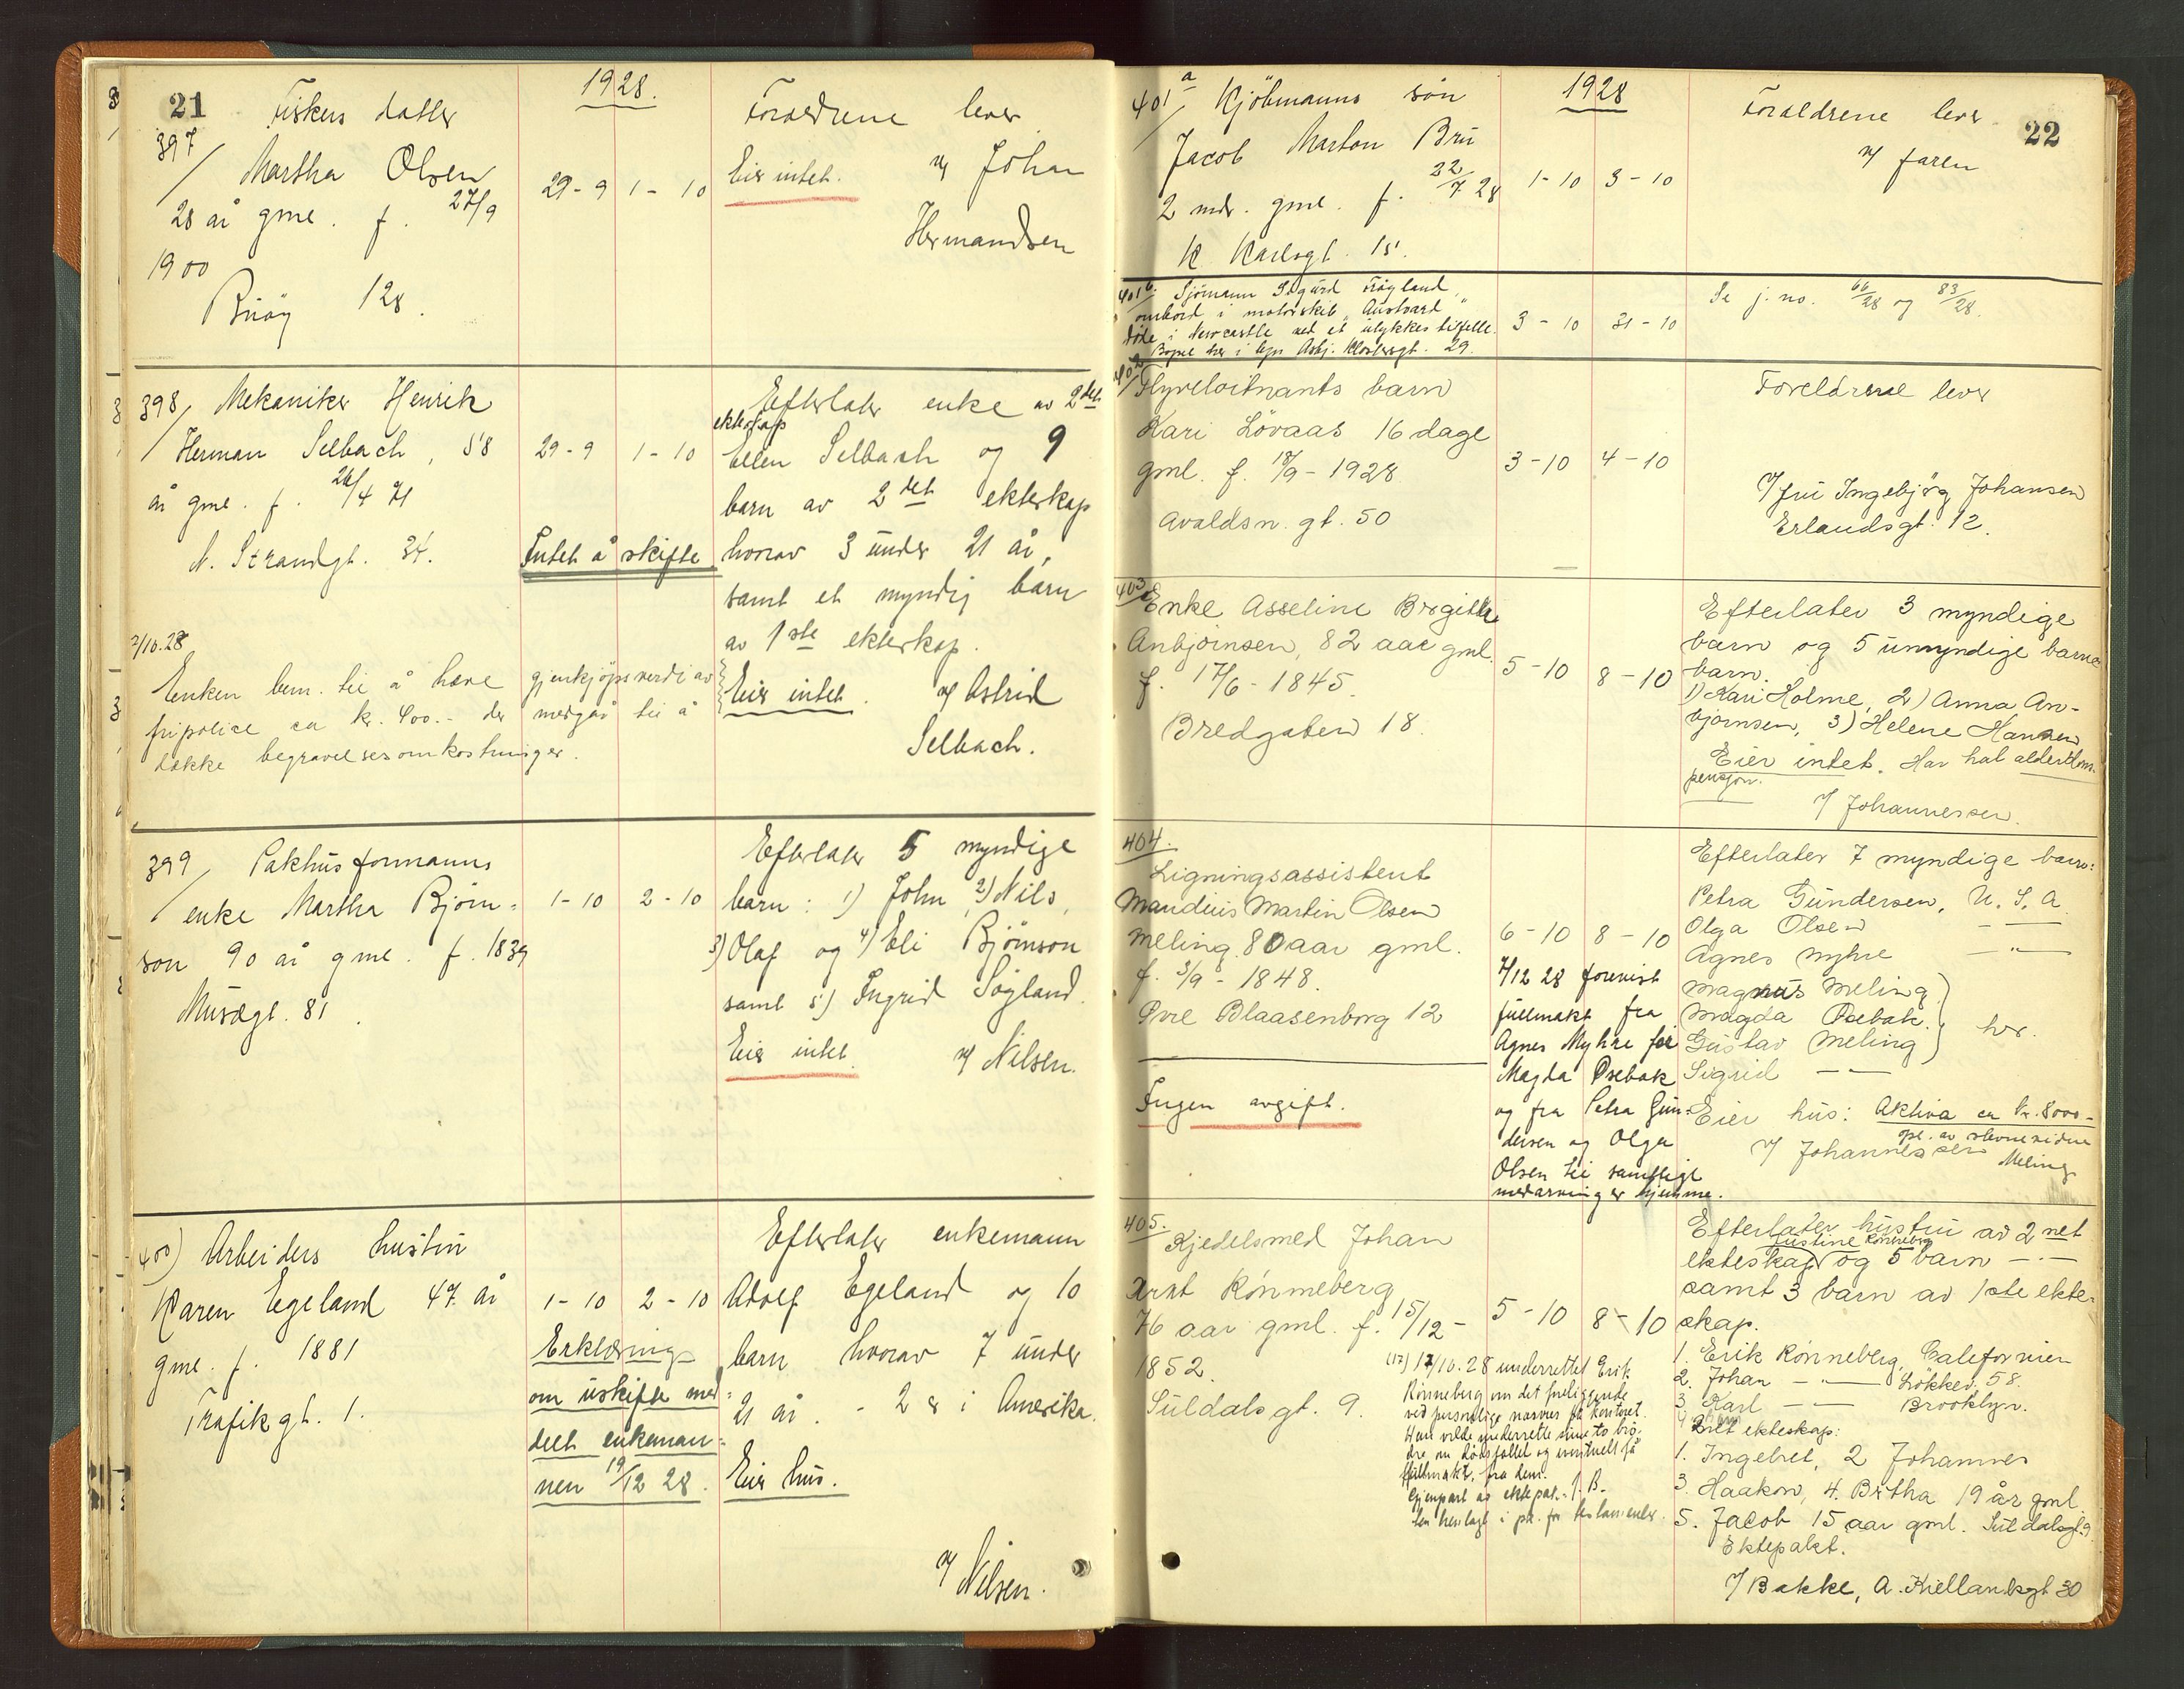 21
1928.
Fiskers datter
397/ Martha Olsen
28 år gml. f. 27/9
1900
Buøy 128.
29-9 1-10
Foreldrene lever
Eier intet. v/ Johan
Hermandsen
398/ Mekaniker Henrik
Herman Selbach, 58
år gml. f. 26/4 71
N. Strandgt. 34.
29-9 1-10
Intet å skifte
Efterlater enke av 2det
ekteskap
Ellen Selbach og 9
barn av 2det ekteskap
hvorav 3 under 21 år,
samt et myndig barn
av 1ste ekteskap.
Eier intet. v/ Astrid
Selbach.
2/10.28
Enken bem. til å heve gjenkjøpsverdi av
fripolice ca kr. 400.- der medgår til å
dække begravelsesomkostninger.
399/ Pakhusformanns
enke Martha Bjørn-
son 90 år gml. f. 1839
Musægt. 81.
1-10 2-10
Efterlater 5 myndige
barn: 1) John, 2) Nils,
3) Olaf og 4) Eli Bjørnson
samt 5) Ingrid Søgland.
Eier intet. v/ Nilsen.
400) Arbeiders hustru
Karen Egeland 47 år
gml. f. 1881
Trafikgt. 1.
1-10 2-10
Erklæring
om uskifte med-
delt enkeman-
nen 19/12 28.
Efterlater enkemann
Adolf Egeland og 10
barn hvorav 7 under
21 år. - 2 er i Amerika.
Eier hus.
v/ Nilsen.
22
1928
401 a/ Kjöbmanns sön
Jacob Marton Bru
2 mdr. gml. f. 22/7 28
K Karlsgt. 15.
1-10 3-10
Foreldrene lever
v/ faren
401 b. Sjömann Sigurd Frøgland,
ombord i motorskib "Austvard"
döde i Newcastle ved et ulykkestilfelle.
Bopel her i byn Asbj. Klostersgt. 29.
3-10 31-10
Se j. no. 66/28 og 83/28.
402/ Flyveloitnants barn
Kari Lövaas 16 dage
gml. f. 18/9-1928.
Avaldsn. gt. 50
3-10 4-10
Foreldrene lever
v/ fru Ingebjörg Johansen
Erlandsgt. 12.
403/ Enke Asseline Birgitte
Anbjørnsen, 82 aar gml.
f. 17/6-1845.
Bredgaten 18.
5-10 8-10
Efterlater 3 myndige
barn og 5 umyndige barne
barn.
1) Kari Holme, 2) Anna An-
bjørnsen, 3) Helene Hansen
Eier intet. Har hat alderdoms-
pensjon.
v/ Johannessen.
404.
Ligningsassistent
Maudius Martin Olsen
Meling 80 aar gml.
f. 3/9-1848.
Øvre Blaasenborg 12
Ingen avgift.
6-10 8-10
7/12 28 forevist
fullmakt fra
Agnes Myhre for
Magda Osebak
og fra Petra Gun-
dersen og Olga
Olsen til samtlige
medarvinger hjemme.
Efterlater 7 myndige barn:
Petra Gundersen, U. S. A.
Olga Olsen - " -
Agnes Myhre - " -
Magnus Meling
Magda Osebak her.
Gustav Meling
Sigrid - " -
Eier hus: Aktiva ca kr. 8000-
v/ Johannessen
Meling
405.
Kjedelsmed Johan
Arnt Rønneberg
76 aar gml. f. 15/12-
1852.
Suldalsgt. 9.
5-10 8-10
17/10.28 underrettet Erik
Rønneberg om det foreliggende
ved personlige nærvær på kontoret.
Han vilde underrette sine to brö-
dre om dödsfallet og eventuelt få
fullmakt fra dem.
Gjenpart av ektepak.
ten henlagt i pk. for testamenter.
Efterlater hustru av 2net
Justine Rønneberg
ekteskap og 5 barn - " -
samt 3 barn av 1ste ekte-
skap.
1. Erik Rønneberg, Californien
2. Johan - " - Løkkev. 58.
3. Karl - " - Brooklyn.
2net ekteskap:
1. Ingebret, 2 Johannes
3. Haakon, 4. Bertha 19 år gml.
5. Jacob 15 aar gml. Suldalsgt. 9
Ektepakt.
v/ Bakke, A. Kiellandsgt 30